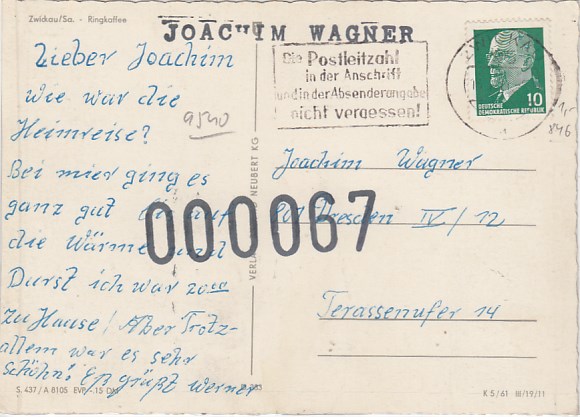 Zwickau/Sa. - Ringkaffee
JOACHIM WAGNER
Lieber Joachim
wie war die
Heimreise?
Bei mier ging es
ganz gut bis auf
die Wärme und
Durst ich war 20⁰⁰
zu Hause! Aber Trotz-
allem war es sehr
Schöhn! Eß grüßt Werner
S. 437 / A 8105 EVP -.15 DM
9540
000067
NEUBERT KG
Die Postleitzahl
in der Anschrift
und in der Absenderangabe
nicht vergessen!
10
DEUTSCHE
DEMOKRATISCHE REPUBLIK
1,-
846
Joachim Wagner
801 Dresden IV/12
Terassenufer 14
K 5/61 III/19/11